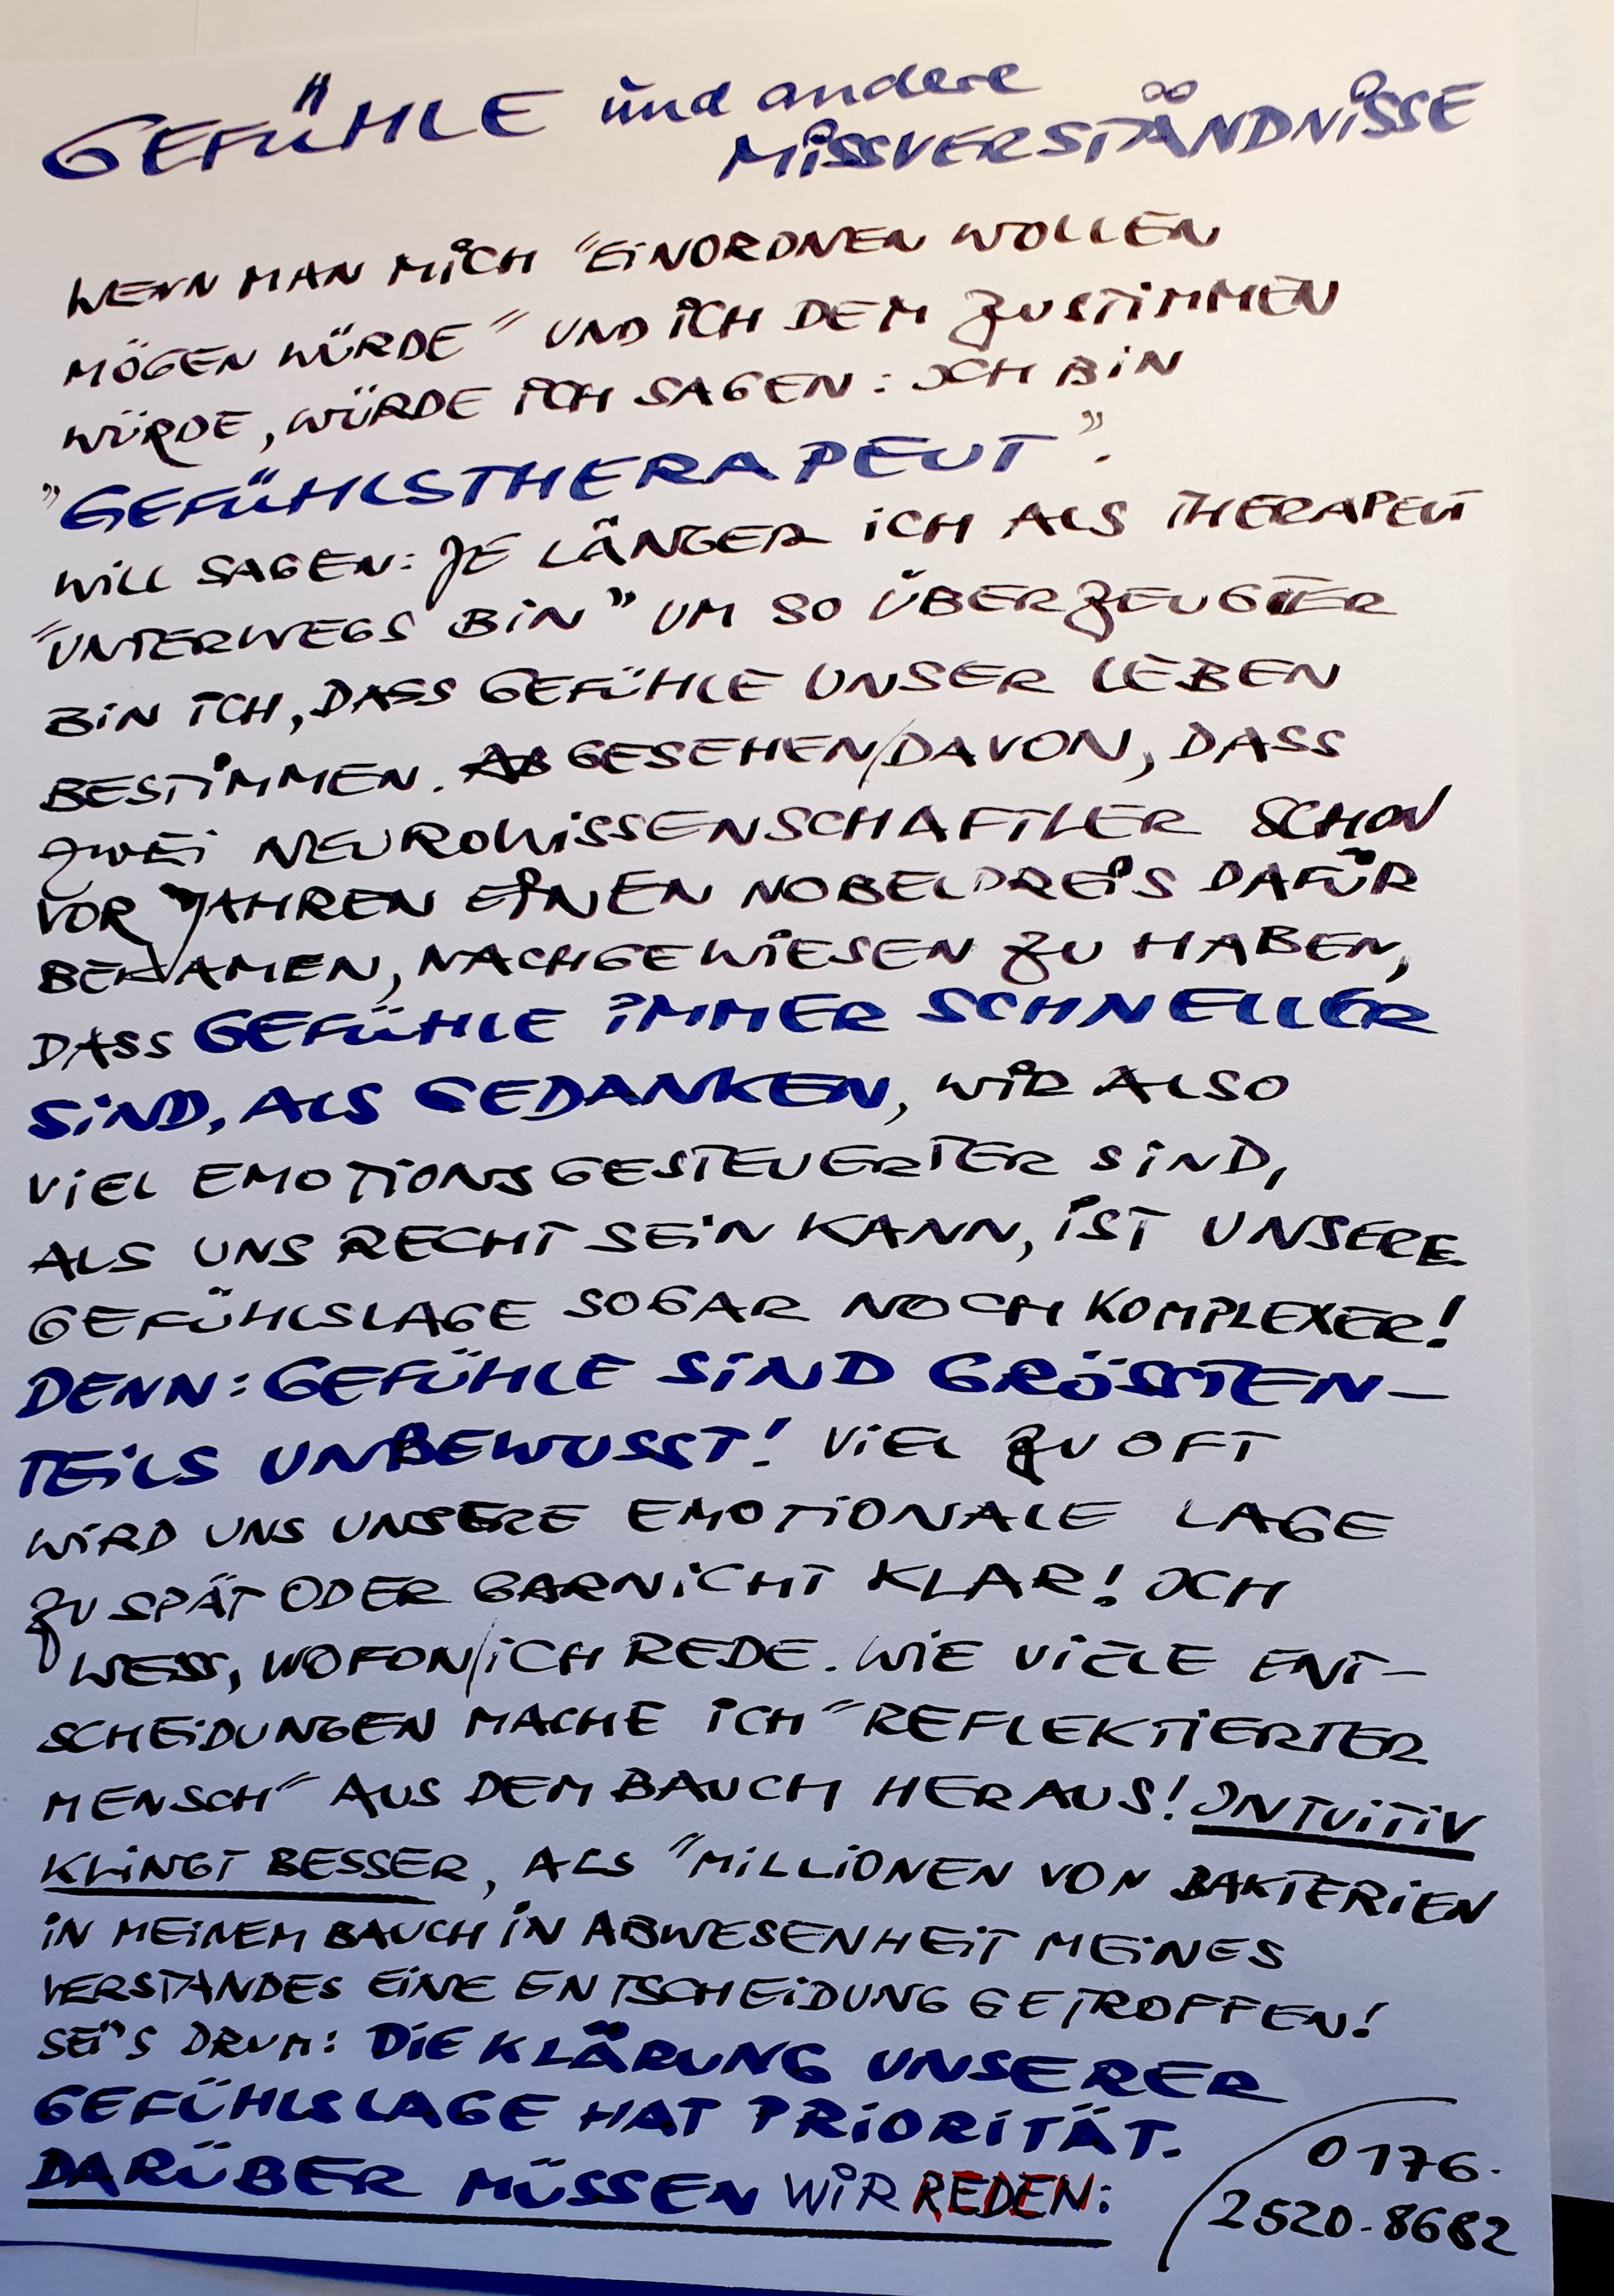 GEFÜHLE und andere
MISSVERSTÄNDNISSE
WENN MAN MICH "EINORDNEN WOLLEN
MÖGEN WÜRDE" UND ICH DEM ZUSTIMMEN
WÜRDE, WÜRDE ICH SAGEN: ICH BIN
"GEFÜHLSTHERAPEUT".
WILL SAGEN: JE LÄNGER ICH ALS THERAPEUT
"UNTERWEGS BIN" UM SO ÜBERZEUGTER
BIN ICH, DASS GEFÜHLE UNSER LEBEN
BESTIMMEN. ABGESEHEN/DAVON, DASS
ZWEI NEUROWISSENSCHAFTLER SCHON
VOR JAHREN EINEN NOBELPREIS DAFÜR
BEKAMEN, NACHGEWIESEN ZU HABEN,
DASS GEFÜHLE IMMER SCHNELLER
SIND, ALS GEDANKEN, WIR ALSO
VIEL EMOTIONSGESTEUERTER SIND,
ALS UNS RECHT SEIN KANN, IST UNSERE
GEFÜHLSLAGE SOGAR NOCH KOMPLEXER!
DENN: GEFÜHLE SIND GRÖSSTEN-
TEILS UNBEWUSST! VIEL ZU OFT
WIRD UNS UNSERE EMOTIONALE LAGE
ZU SPÄT ODER GARNICHT KLAR! ICH
WEISS, WOFON/ICH REDE. WIE VIELE ENT-
SCHEIDUNGEN MACHE ICH "REFLEKTIERTER
MENSCH" AUS DEM BAUCH HERAUS! INTUITIV
KLINGT BESSER, ALS "MILLIONEN VON BAKTERIEN
IN MEINEM BAUCH IN ABWESENHEIT MEINES
VERSTANDES EINE ENTSCHEIDUNG GETROFFEN!
SEI'S DRUM: DIE KLÄRUNG UNSERER
GEFÜHLSLAGE HAT PRIORITÄT.
DARÜBER MÜSSEN WIR REDEN:
0176-
2520-8682